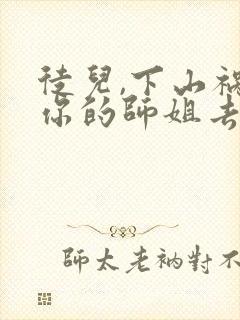 徒兒,下山禍
你的師姐去
師太老衲對不